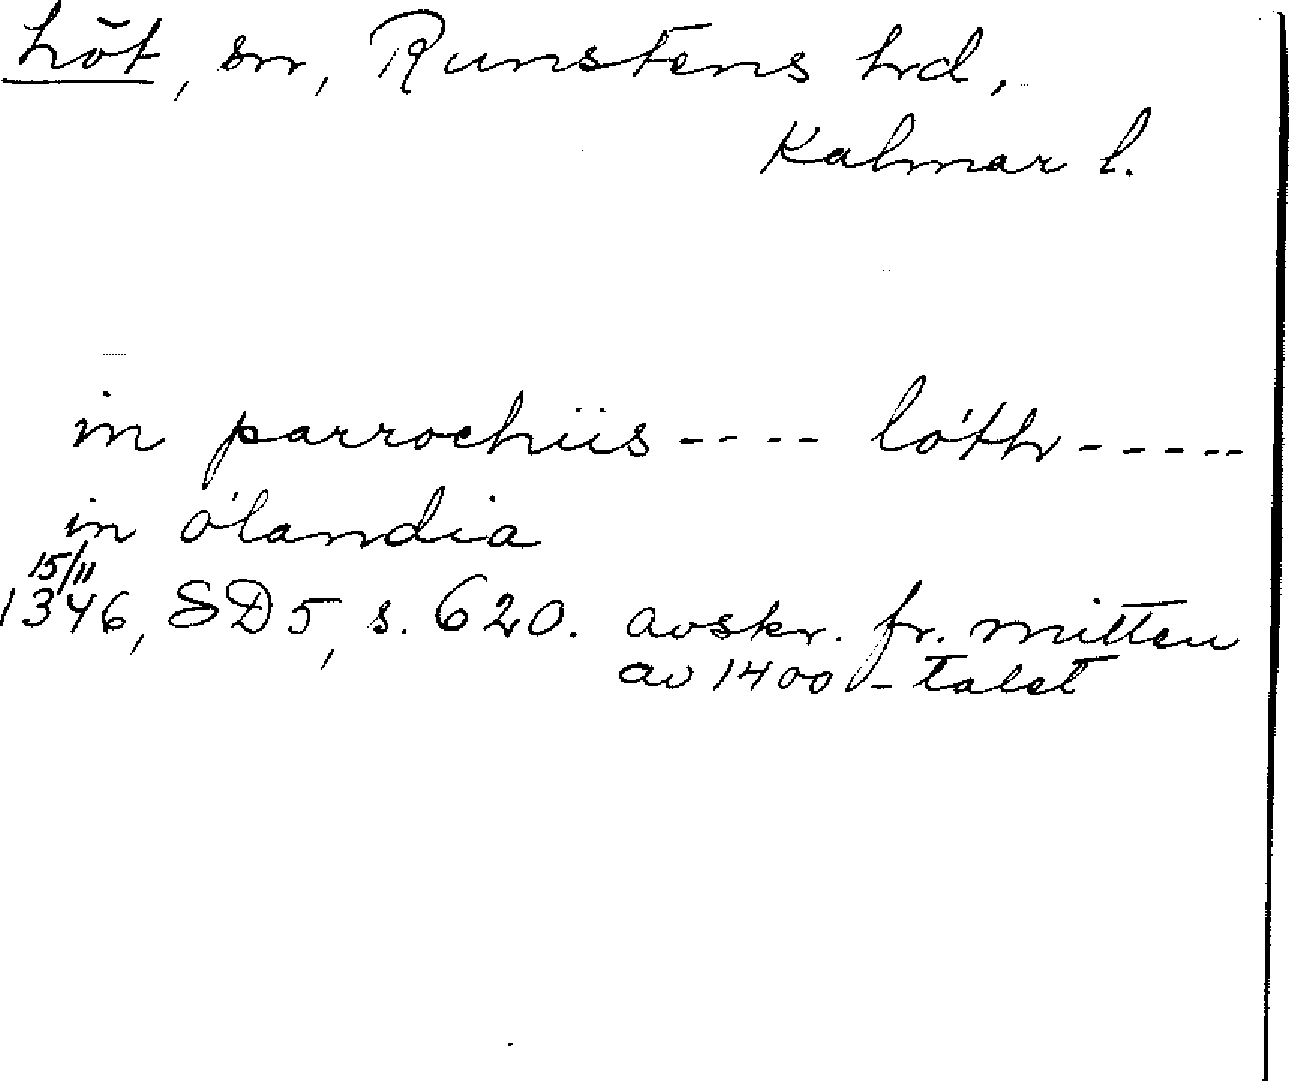 Löt, sn, Runstens hd,
Kalmar l.
in parrochiis ---- lóth -----
in ólandia
15/11
1346, SD5, s. 620. avskr. fr. mitten
av 1400-talet